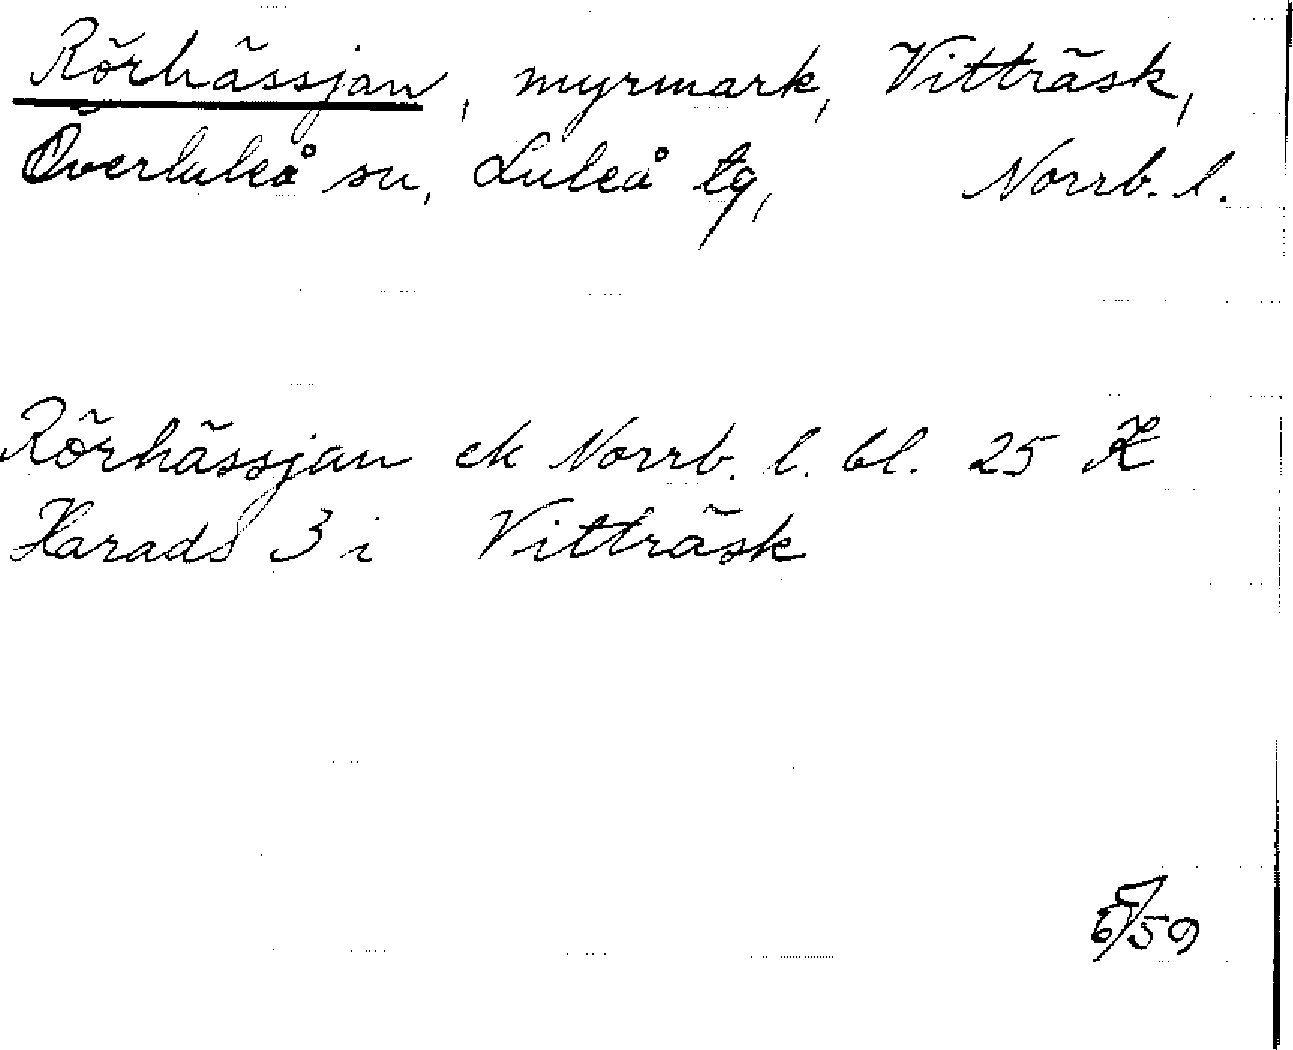 Rörhässjan, myrmark, Vitträsk,
Överluleå sn, Luleå tg, Norrb. l.
Rörhässjan ek Norrb. l. bl. 25 K
Harads 3 i Vitträsk